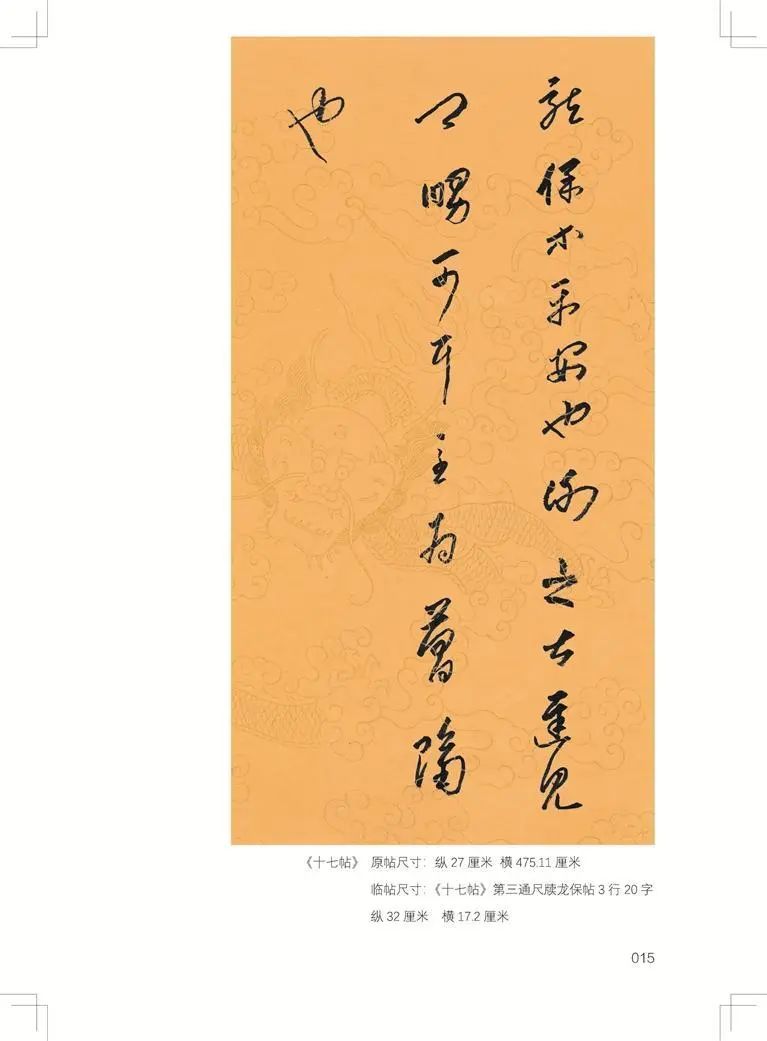 龍保等平安也謝之甚遲見
卿舅可耳至為簡隔
也
《十七帖》 原帖尺寸：纵27厘米 横475.11厘米
临帖尺寸：《十七帖》第三通尺牍龙保帖3行20字
纵32厘米 横17.2厘米
015